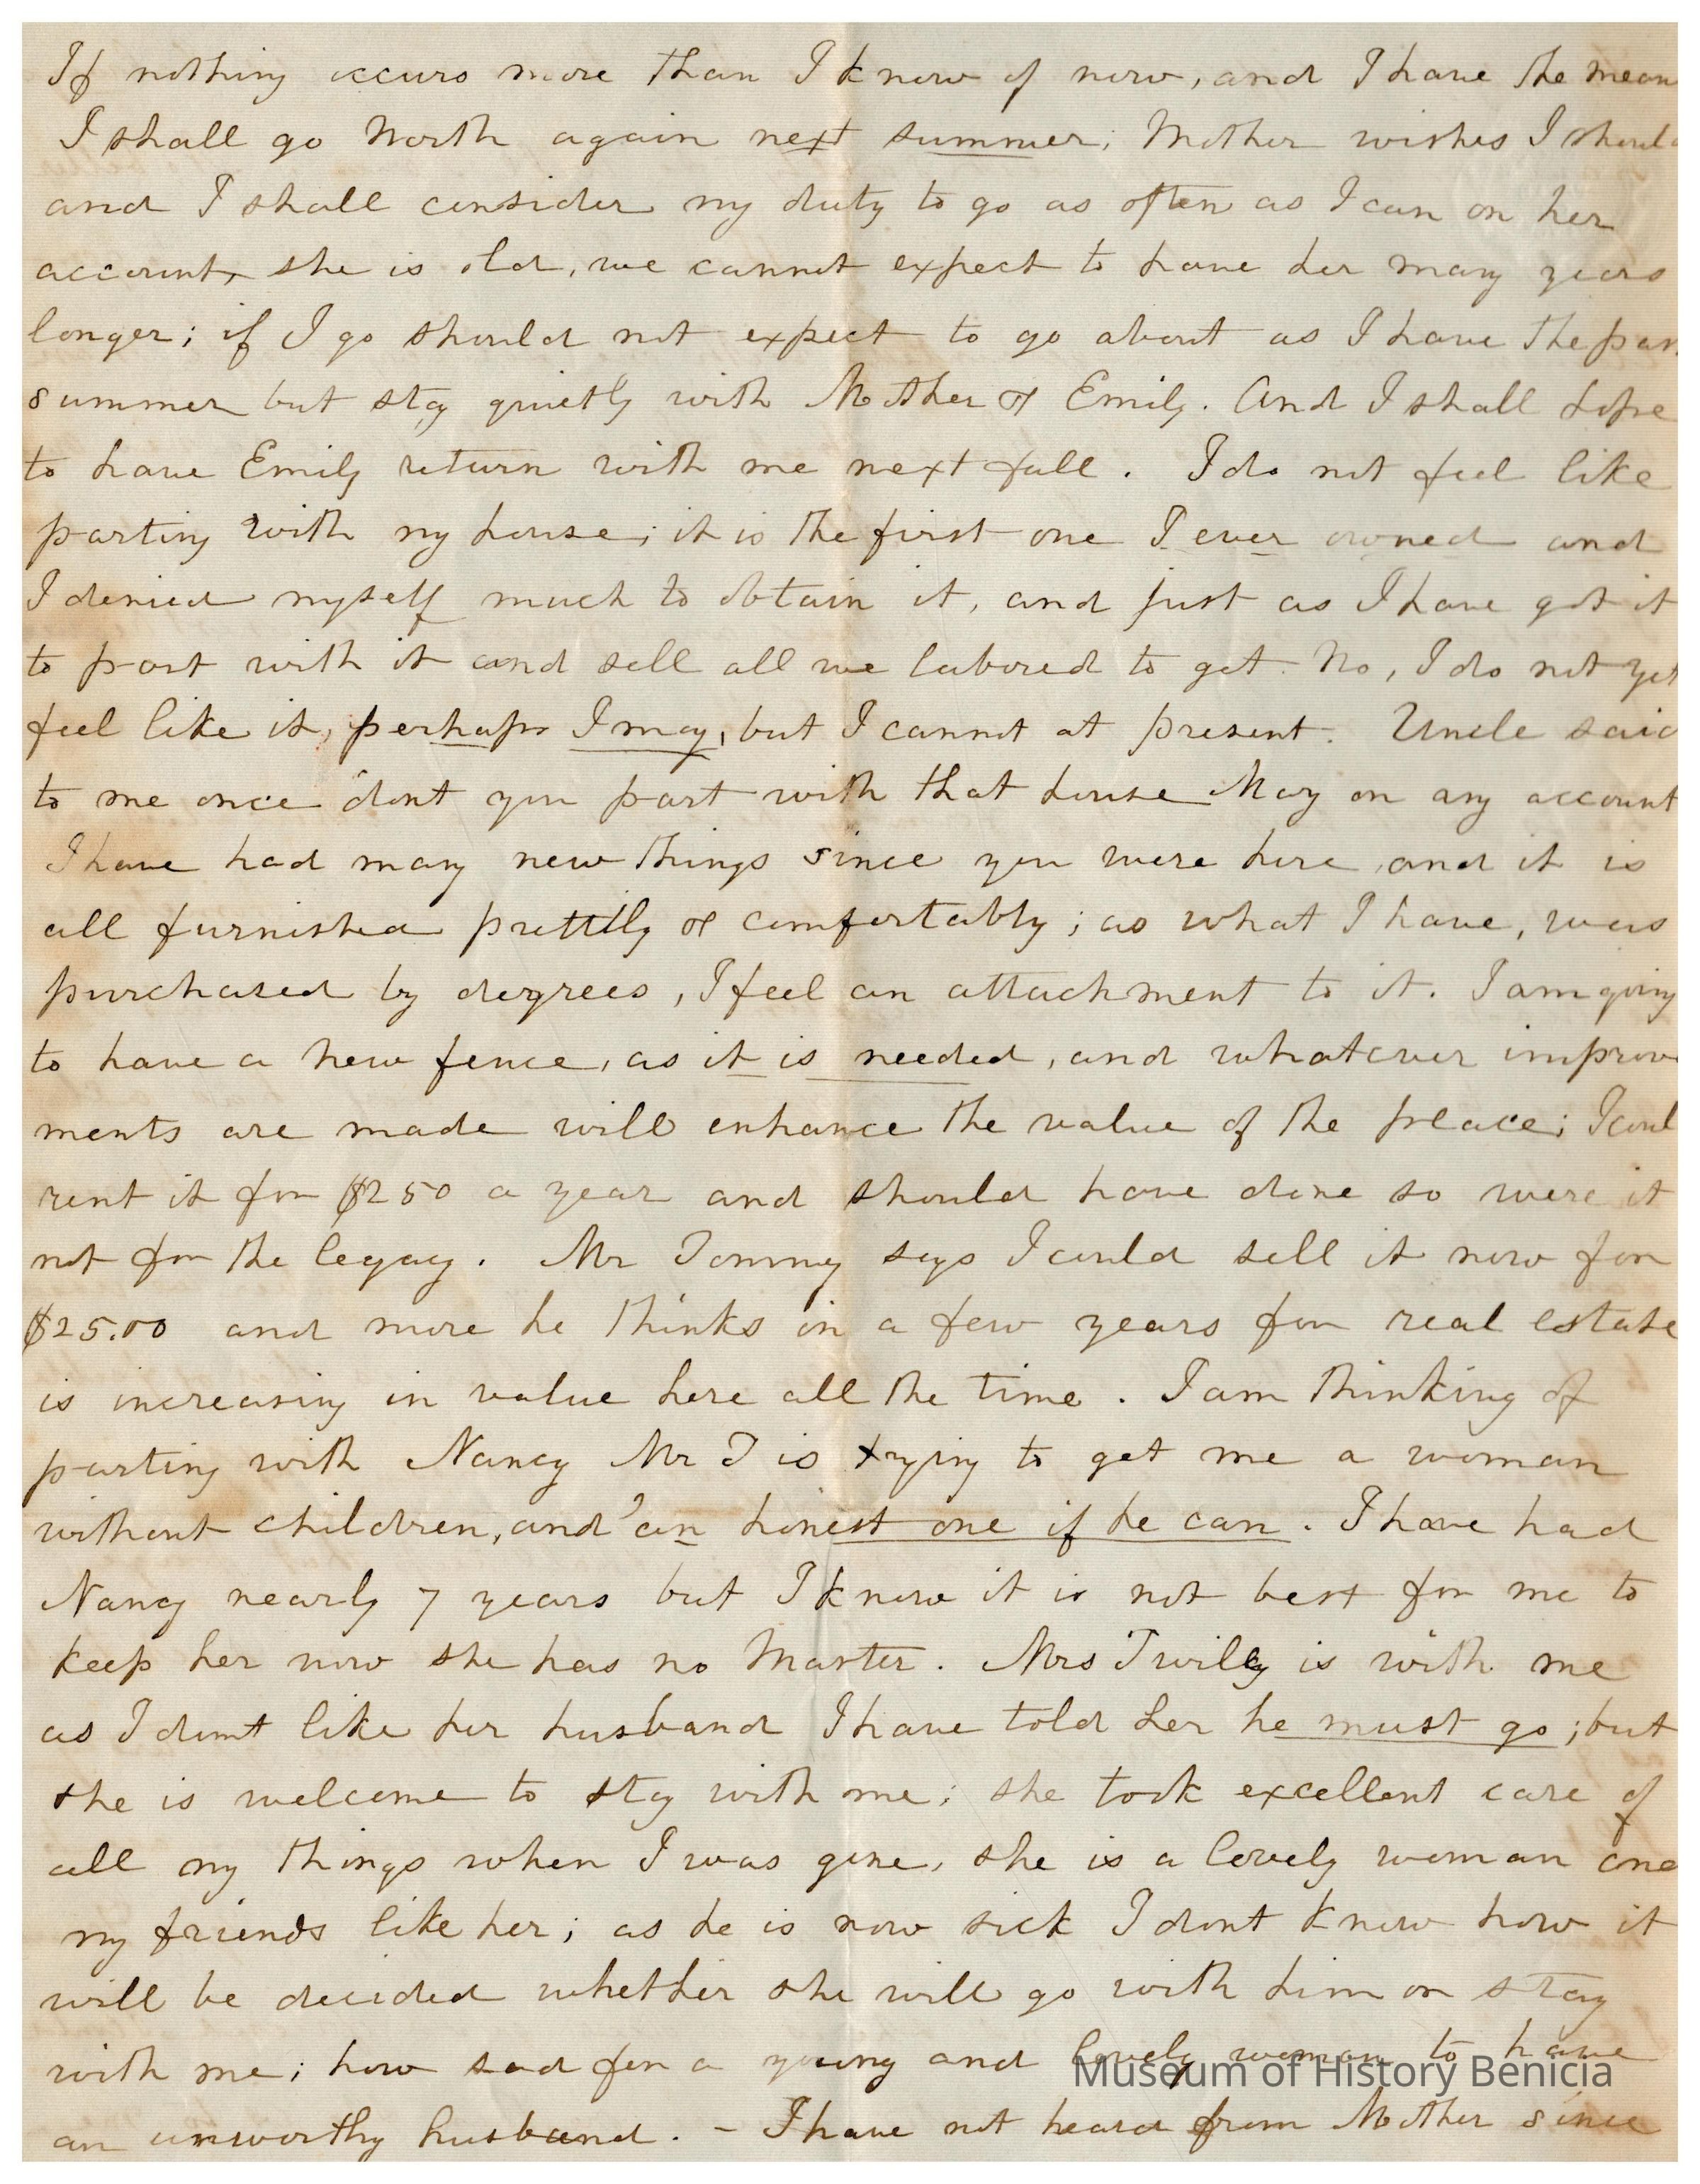 If nothing occurs more than I know of now, and I have the mean
I shall go North again next summer; Mother wishes I should
and I shall consider my duty to go as often as I can on her
account, she is old, we cannot expect to have her many years
longer; if I go should not expect to go about as I have the pas
summer but stay quietly with Mother & Emily. And I shall hope
to have Emily return with me next fall. I do not feel like
parting with my house; it is the first one I ever owned and
I denied myself much to obtain it, and just as I have got it
to part with it and sell all we labored to get. No, I do not yet
feel like it, perhaps I may, but I cannot at present. Uncle said
to me once "dont you part with that house May on any account
I have had many new things since you were here, and it is
all furnished prettily & comfortably; as what I have, was
purchased by degrees, I feel an attachment to it. I am going
to have a new fence, as it is needed, and whatever improve
ments are made will enhance the value of the place; I coul
rent it for $250 a year and should have done so were it
not for the legacy. Mr Tommy says I could sell it now for
$25.00 and more he thinks in a few years for real estate
is increasing in value here all the time. I am thinking of
parting with Nancy Mr T is trying to get me a woman
without children, and an honest one if he can. I have had
Nancy nearly 7 years but I know it is not best for me to
keep her now she has no Master. Mrs Twilly is with me
as I dont like her husband I have told her he must go; but
she is welcome to stay with me; she took excellent care of
all my things when I was gone, she is a lovely woman and
my friends like her; as he is now sick I dont know how it
will be decided whether she will go with him or stay
with me; how sad for a young and lovely woman to have
an unworthy husband. - I have not heard from Mother since
Museum of History Benicia